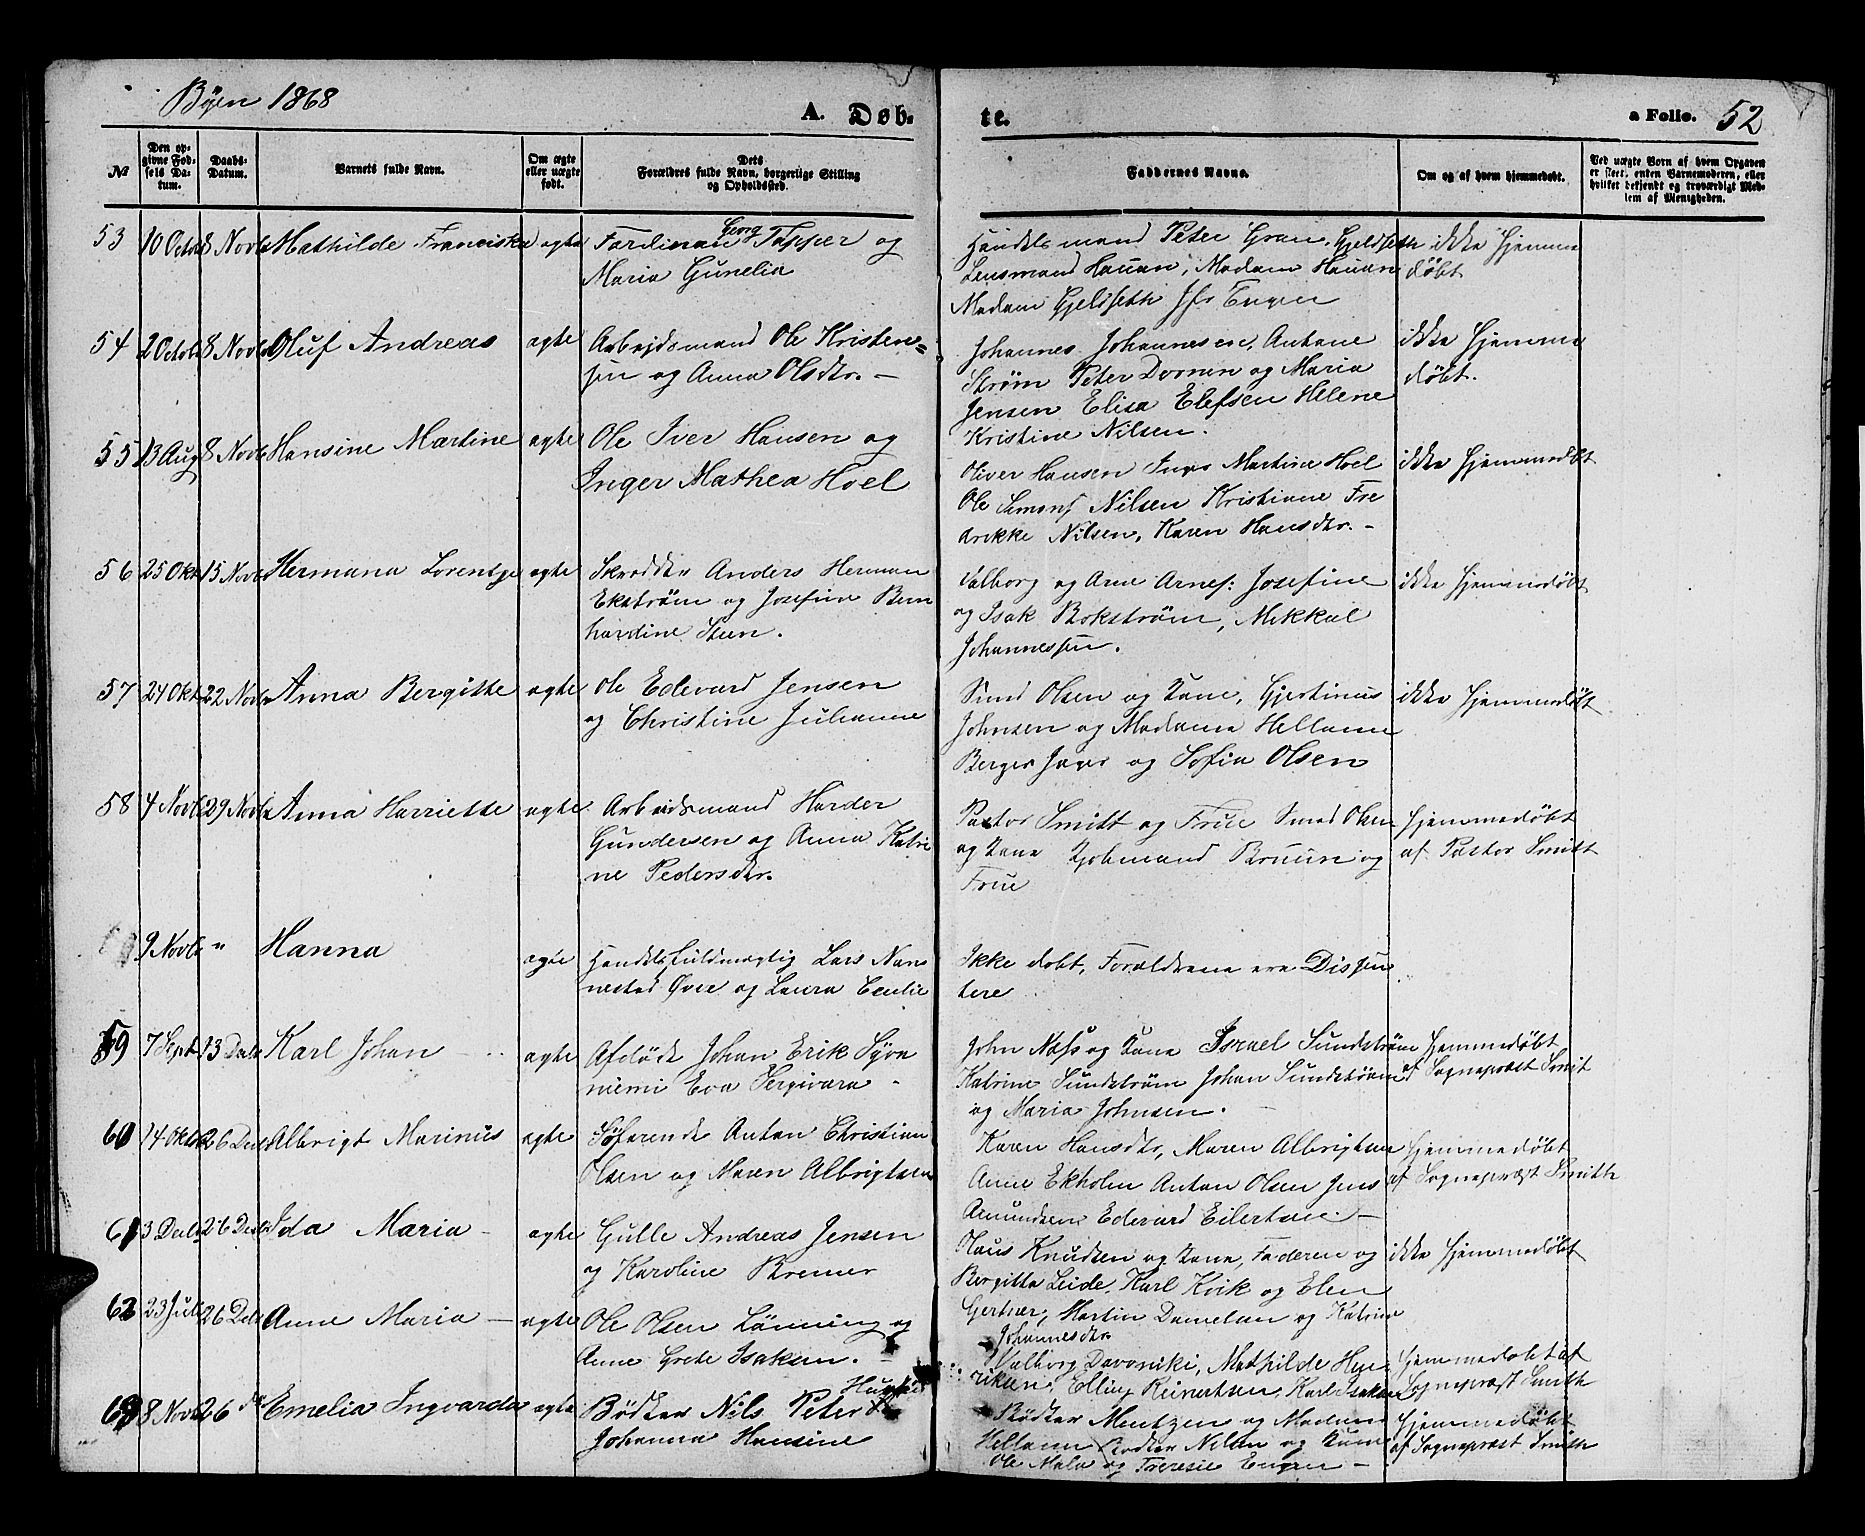 Byen 1868
A. Døb-
te.
a Folio. 52
№
Den op-
givne Fød-
sels Da-
tum.
Daabs-
Datum.
Barnets fulde Navn.
Om ægte
eller uægte
født.
Dets
Forældres fulde Navn, borgerlige Stilling
og Opholdssted.
Faddernes Navne.
Om og af hvem hjemmedøbt.
Ved uægte Børn af hvem Opgaven
er skeet, enten Barnemoderen, eller
hvilket bekjendt og troværdigt Med-
lem af Menigheden.
53 10 Octob 8 Novb Mathilde Franciska ægte Ferdinan Georg Tapper og
Maria Gunelia
Handelsmand Peter Gran, Gjeldseth
Lensmand Hauan, Madam Hauan
Madam Gjeldseth Jfr Engen
ikke hjemme
døbt
54 2 Octob 8 Novb Oluf Andreas ægte Arbeidsmand Ole Kristen=
sen og Anna Olsdtr. —
Johannes Johannesen, Antane
Strøm Peter Dornen og Maria
Jensen Elisa Elefsen Helene
Kristine Nilsen.
ikke hjemme
døbt.
55 13 Aug 8 Novb Hansine Martine ægte Ole Iver Hansen og
Inger Mathea Hoel
Oliver Hansen Inger Martine Hoel
Ole Simons Nilsen Kristiane Fre
drikke Nilsen, Karen Hansdtr. —
ikke hjemmedøbt
56 25 Okt 15 Novb Hermana Lorentze ægte Skrædder Anders Herman
Ekström og Josefine Bern
hardine Steen.
Valborg og Arne Arnes: Josefine
og Isak Bokström, Mikkal
Johannessen.
ikke hjemmedøbt
57 24 Okt 22 Novb Anna Bergitte ægte Ole Edevard Jensen
og Christine Julianne
Smed Olsen og Kone, Gjertinus
Johnsen og Madame Hellann
Berger og Sofia Olsen
ikke hjemmedøbt
58 4 Novb 29 Novb Anna Harriette ægte Arbeidsmand Harder
Gundersen og Anna Katri
ne Pedersdtr.
Pastor Smitt og Frue Smed Olsen
og Kone Kjøbmand Bruun og
Frue
hjemmedøbt
af Pastor Smitt
9 Novb " Hanna ægte Handelsfuldmægtig Lars Nan
nestad Øvre og Laura Cecilie
Ikke døbt, Forældrene ere Dissen
tere
59 7 Sept 13 Decb Karl Johan — ægte Afdøde Johan Erik Syvä
niemi Eva Sergivara -
John Næss og Kone Israel Sundström
Katrine Sundström Johan Sundström
og Maria Johnsen. —
hjemmedøbt
af Sognepræst Smit
60 14 Okt 26 Decb Albrigt Marinus ægte Søfarende Anton Christian
Olsen og Maren Albrigtsen
Karen Hansdtr, Maren Albrigtsen
Anne Ekholm Anton Olsen Jens
Amundsen Edevard Eilertsen. —
hjemmedøbt
af Sognepræst Smith
61 3 Decb 26 Decb Ida Maria — ægte Gulle Andreas Jensen
og Karoline Bremer
Claus Knudsen og Kone, Faderen og
Bergitta Leide, Karl Kvik og Elen
Gertner,
ikke hjemmedøbt
62 23 Juli 26 Decb Anne Maria — ægte Ole Olsen Lönning og
Anne Grete Isaksen. —
Martin Danielsen og Katrine
Johannesdtr.
Valborg Davoniki, Mathilde Hen-
riksen, Elling Reinertsen, Karl Isaksen
hjemmedøbt af
Sognepræst Smith
63 8 Novb 26 do Emelia Ingvarda ægte Bødker Nils Peter
Johanna Hansine
Bødker Mentzen og Madam
Hellann Bødker Nilsen og Kone
Ole Mala og Therese Engen —
hjemmedøbt
af Sognepræst Smith